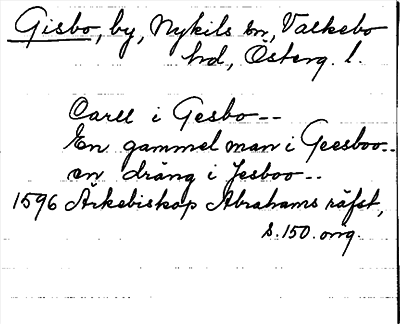 Gisbo, by, Nykils sn, Valkebo
hd, Österg. l.
Carll i Gesbo--
En gammel man i Geesboo--
en dräng i Jesboo--
1596 Ärkebiskop Abrahams räfst,
s. 150. orig.